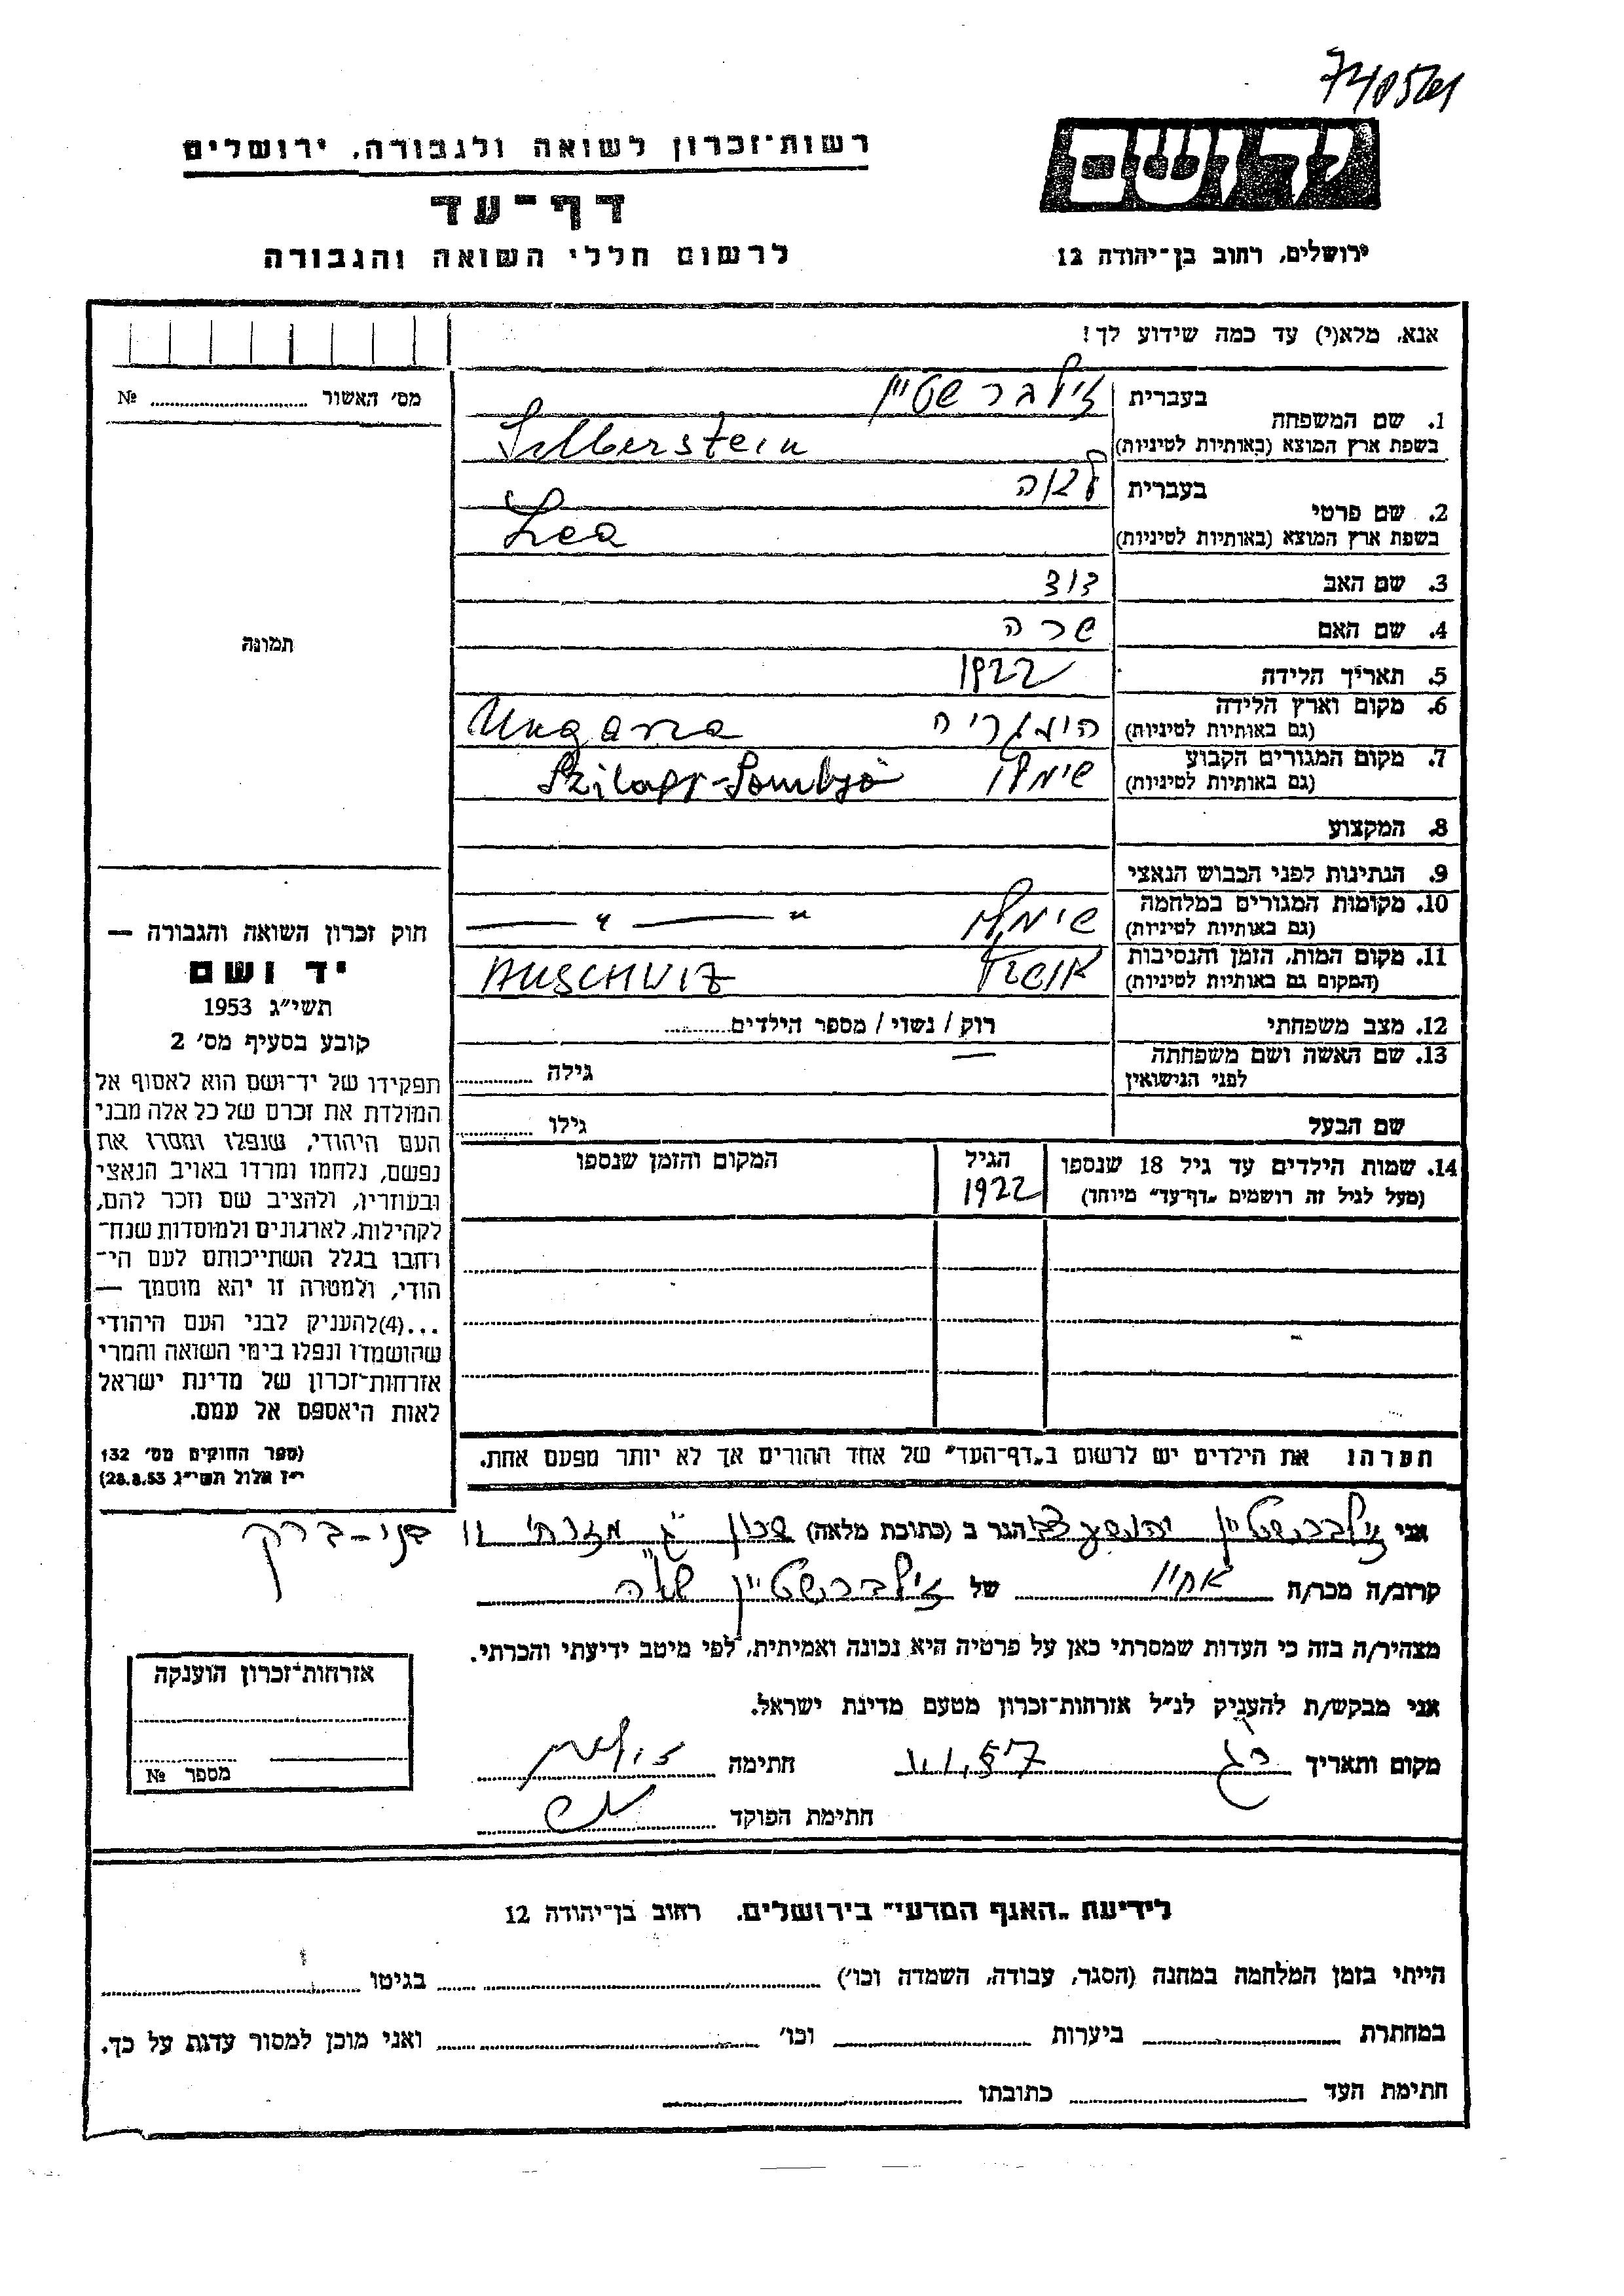 רשות־זכרון לשואה ולגבורה, ירושלים
דף־עד
לרשום חללי השואה והגבורה
יד ושם
ירושלים, רחוב בן־יהודה 12
אנא, מלא(י) עד כמה שידוע לך!
מס' האשור ........ №
1. שם המשפחה בעברית זילברשטיין
בשפת ארץ המוצא (באותיות לטיניות) Silberstein
2. שם פרטי בעברית לאה
בשפת ארץ המוצא (באותיות לטיניות) Lea
3. שם האב דוד
4. שם האם שרה
5. תאריך הלידה 1922
6. מקום וארץ הלידה (גם באותיות לטיניות) הונגריה Ungaria
7. מקום המגורים הקבוע (גם באותיות לטיניות) שימלוי
8. המקצוע
9. הנתינות לפני הכבוש הנאצי
10. מקומות המגורים במלחמה (גם באותיות לטיניות) — " — " —
11. מקום המות, הזמן והנסיבות (המקום גם באותיות לטיניות) AUSCHVIZ
12. מצב משפחתי רוק / נשוי / מספר הילדים........
13. שם האשה ושם משפחתה לפני הנישואין — גילה ........
שם הבעל גילו ........
14. שמות הילדים עד גיל 18 שנספו (מעל לגיל זה רושמים "דף־עד" מיוחד) הגיל 1922 המקום והזמן שנספו
תמונה
חוק זכרון השואה והגבורה —
יד ושם
תשי"ג 1953
קובע בסעיף מס' 2
תפקידו של יד־ושם הוא לאסוף אל
המולדת את זכרם של כל אלה מבני
העם היהודי, שנפלו ומסרו את
נפשם, נלחמו ומרדו באויב הנאצי
ובעוזריו, ולהציב שם וזכר להם,
לקהילות, לארגונים ולמוסדות שנח־
רבו בגלל השתייכותם לעם הי־
הודי, ולמטרה זו יהא מוסמך —
...(4)להעניק לבני העם היהודי
שהושמדו ונפלו בימי השואה והמרי
אזרחות־זכרון של מדינת ישראל
לאות היאספם אל עמם.
(ספר החוקים מס' 132
י"ז אלול תשי"ג 28.8.53)
הערה: את הילדים יש לרשום ב"דף־העד" של אחד ההורים אך לא יותר מפעם אחת.
אני זילברשטיין יהושע הגר ב (כתובת מלאה) שכון ג' מזרחי 11 בני-ברק
קרוב/ה מכר/ה אחיו של זילברשטיין
מצהיר/ה בזה כי העדות שמסרתי כאן על פרטיה היא נכונה ואמיתית, לפי מיטב ידיעתי והכרתי.
אני מבקש/ת להעניק לנ"ל אזרחות־זכרון מטעם מדינת ישראל.
מקום ותאריך חתימה
חתימת הפוקד
אזרחות־זכרון הוענקה
מספר №
לידיעת "האגף המדעי" בירושלים, רחוב בן־יהודה 12
הייתי בזמן המלחמה במחנה (הסגר, עבודה, השמדה וכו') ........ בגיטו ........
במחתרת ........ ביערות ........ וכו' ........ ואני מוכן למסור עדות על כך.
חתימת העד ........ כתובתו ........